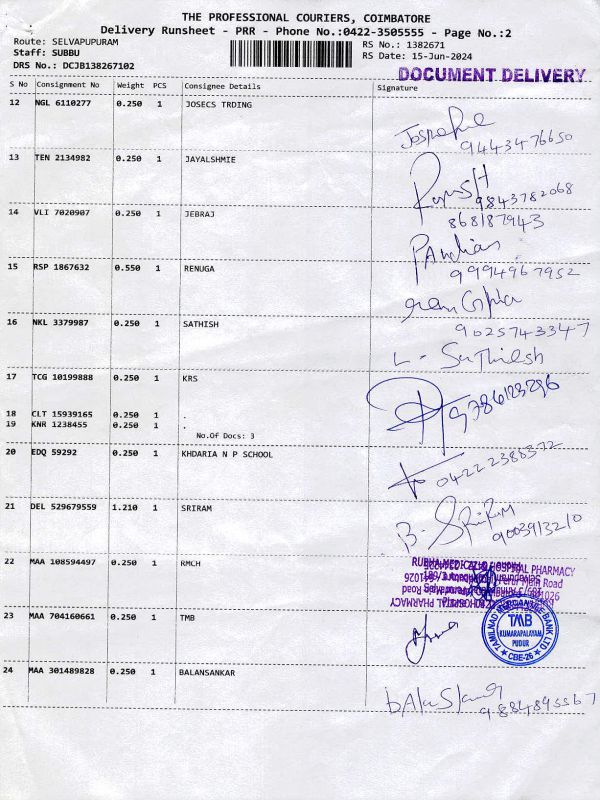 THE PROFESSIONAL COURIERS, COIMBATORE
Delivery Runsheet - PRR - Phone No.:0422-3505555 - Page No.:2
Route: SELVAPUPURAM RS No.: 1382671
Staff: SUBBU RS Date: 15-Jun-2024
DRS No.: DCJB138267102
DOCUMENT DELIVERY
S No Consignment No Weight PCS Consignee Details Signature
12 NGL 6110277 0.250 1 JOSECS TRDING
9443476650
13 TEN 2134982 0.250 1 JAYALSHMIE
9843782068
14 VLI 7020907 0.250 1 JEBRAJ
868187943
Pandian
15 RSP 1867632 0.550 1 RENUGA
9994967952
16 NKL 3379987 0.250 1 SATHISH
9025743347
L. Sathiesh
17 TCG 10199888 0.250 1 KRS
9786123296
18 CLT 15939165 0.250 1 .
19 KNR 1238455 0.250 1 .
No.Of Docs: 3
20 EDQ 59292 0.250 1 KHDARIA N P SCHOOL
0422 2388372
21 DEL 529679559 1.210 1 SRIRAM
B. SRIRAM
9003913210
22 MAA 108594497 0.250 1 RMCH
RUBHA MEDICAL HOSPITAL PHARMACY
23 MAA 704160661 0.250 1 TMB
TAMILNAD MERCANTILE BANK LTD
TMB
KUMARAPALAYAM
PUDUR
CBE-26
24 MAA 301489828 0.250 1 BALANSANKAR
9884895567